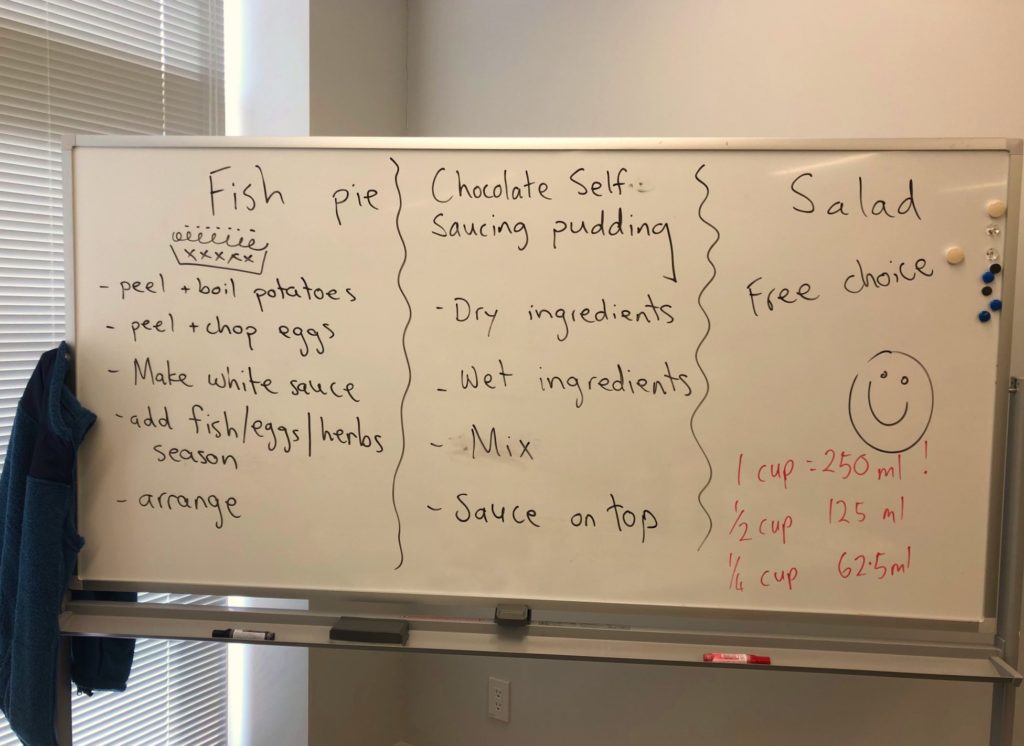 Fish pie
- peel + boil potatoes
- peel + chop eggs
- Make white sauce
- add fish/eggs/herbs
season
- arrange
Chocolate Self-
Saucing pudding
- Dry ingredients
- Wet ingredients
- Mix
- Sauce on top
Salad
Free choice
1 cup = 250 ml!
1/2 cup 125 ml
1/4 cup 62.5ml